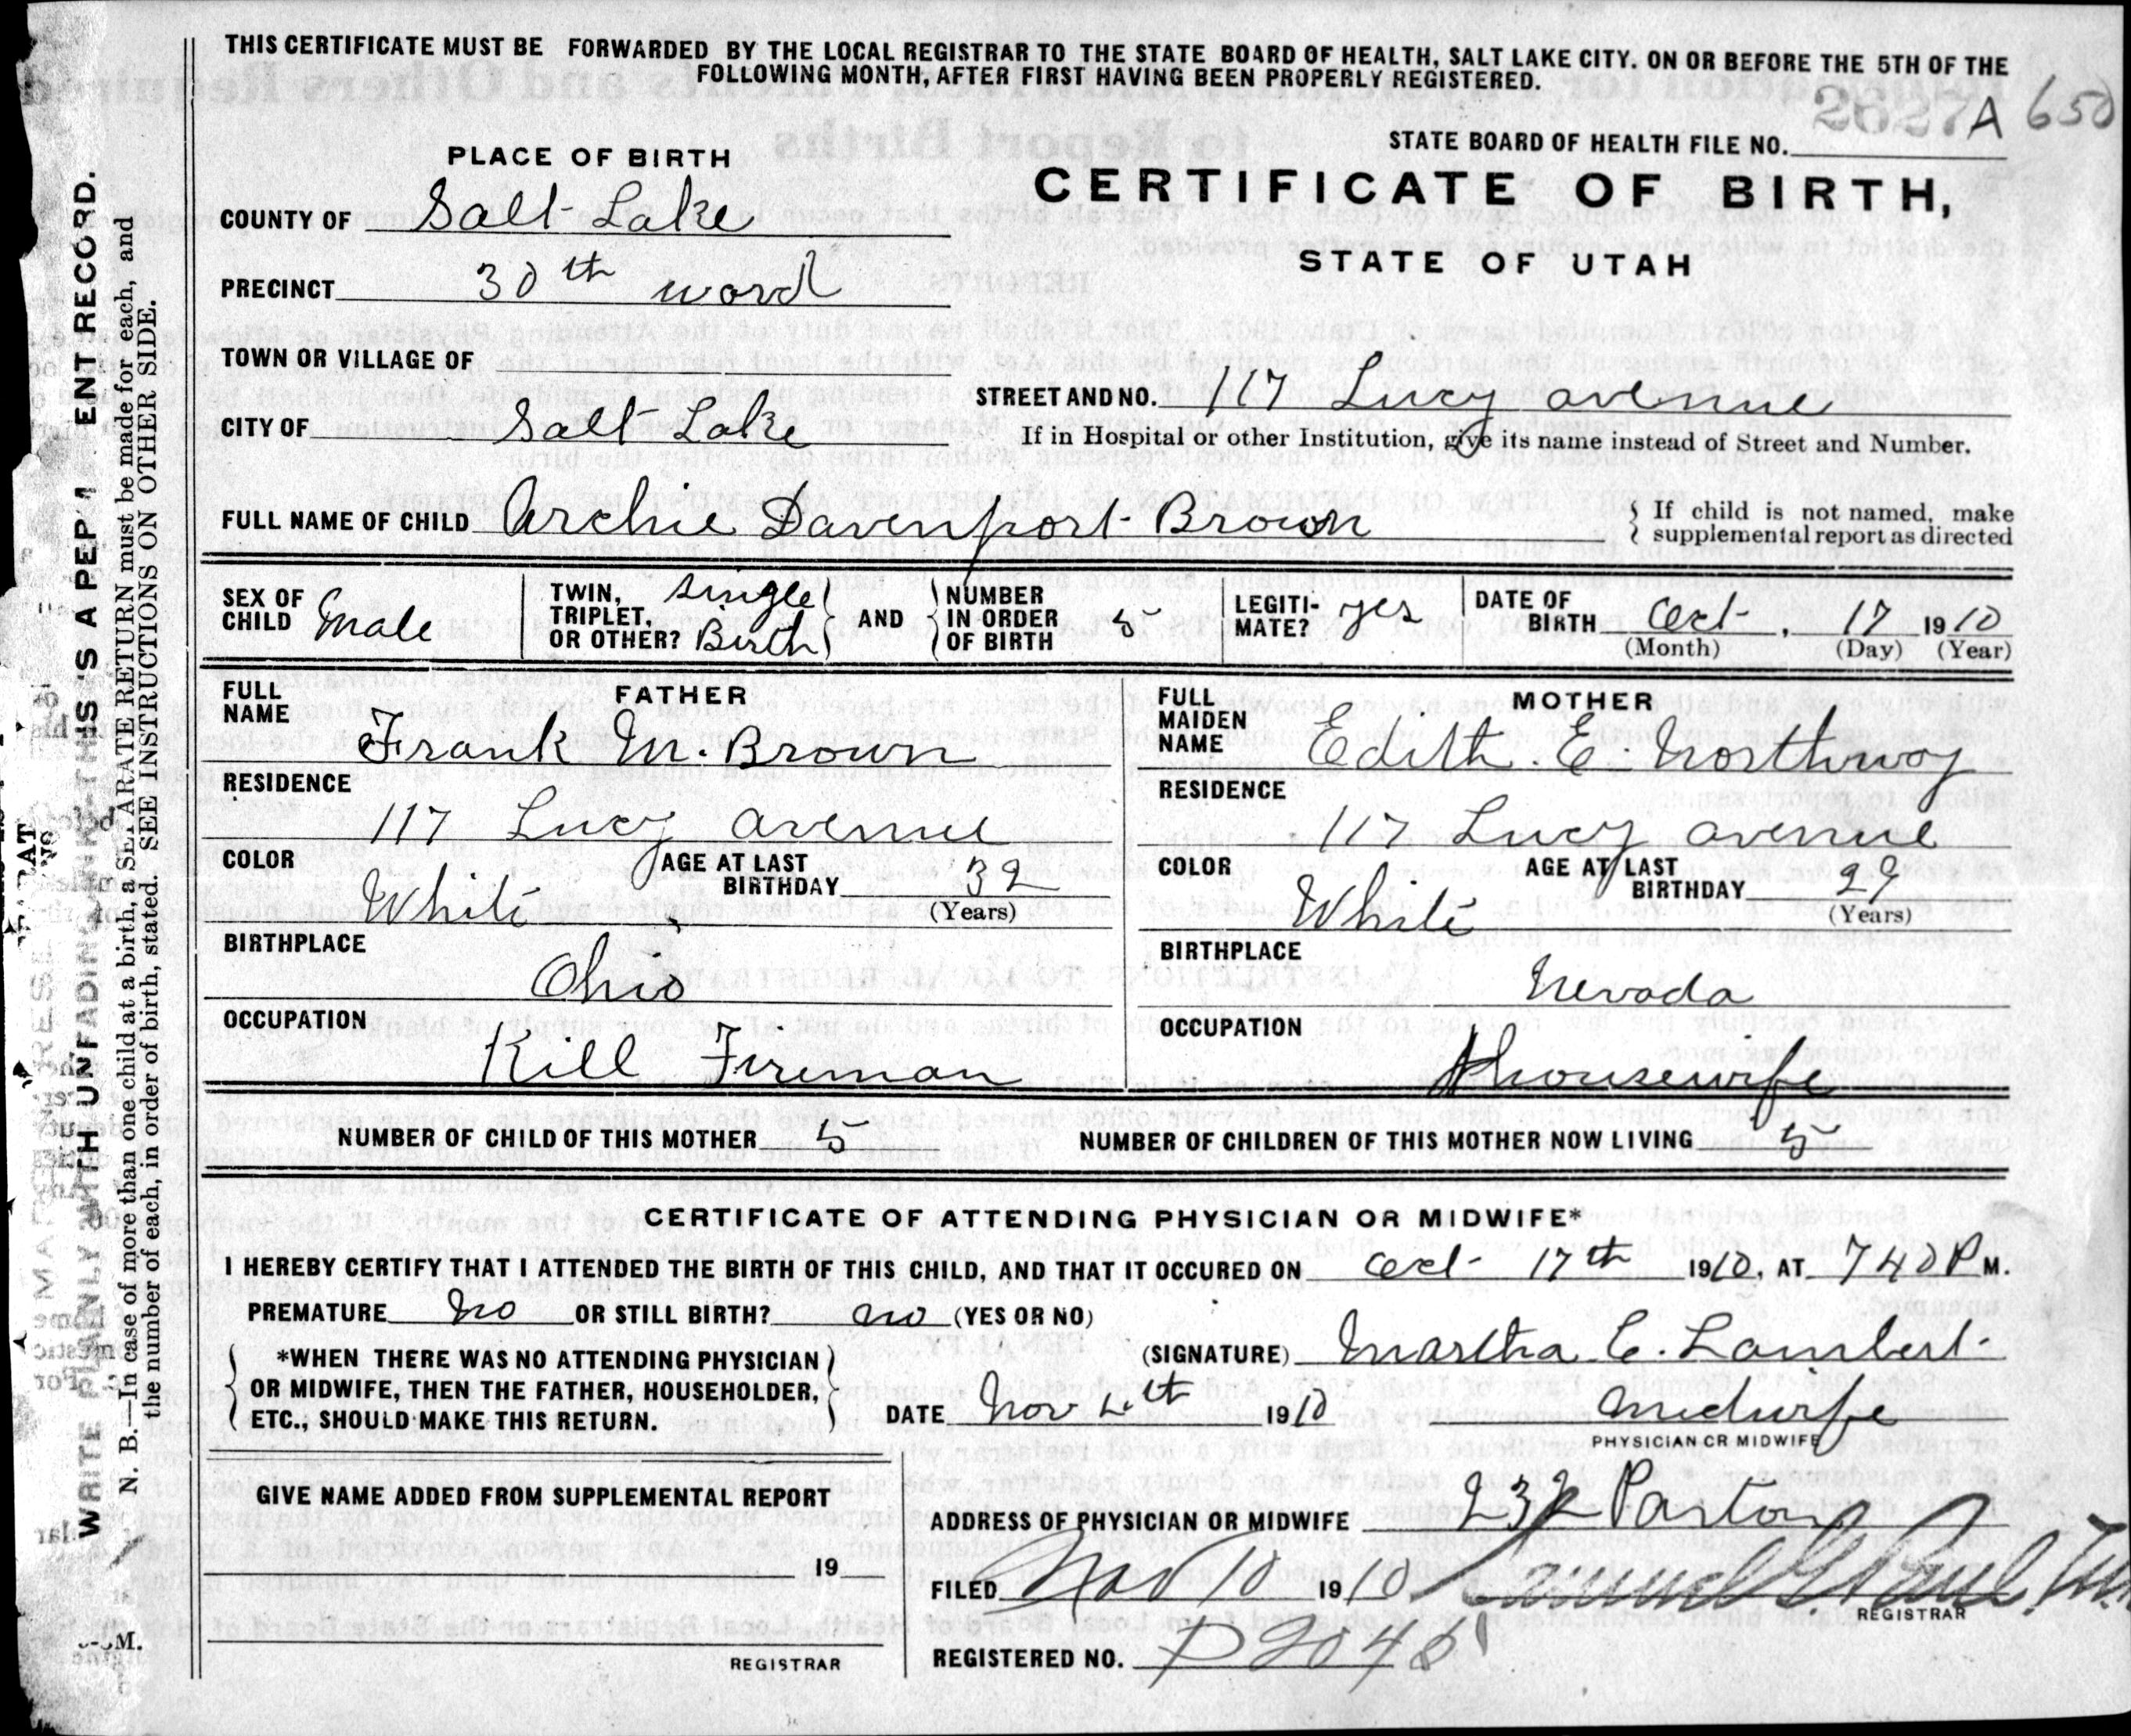 THIS CERTIFICATE MUST BE FORWARDED BY THE LOCAL REGISTRAR TO THE STATE BOARD OF HEALTH, SALT LAKE CITY. ON OR BEFORE THE 5TH OF THE
FOLLOWING MONTH, AFTER FIRST HAVING BEEN PROPERLY REGISTERED.
2627A 650
STATE BOARD OF HEALTH FILE NO.
PLACE OF BIRTH
CERTIFICATE OF BIRTH,
STATE OF UTAH
COUNTY OF Salt Lake
PRECINCT 30th ward
TOWN OR VILLAGE OF
STREET AND NO. 117 Lucy avenue
CITY OF Salt Lake
If in Hospital or other Institution, give its name instead of Street and Number.
FULL NAME OF CHILD Archie Davenport Brown
If child is not named, make
supplemental report as directed
SEX OF CHILD Male
TWIN, TRIPLET, OR OTHER? Single Birth
AND NUMBER IN ORDER OF BIRTH 5
LEGITI-MATE? yes
DATE OF BIRTH Oct. 17 1910
(Month) (Day) (Year)
FATHER
FULL NAME Frank M. Brown
RESIDENCE
117 Lucy avenue
COLOR White
AGE AT LAST BIRTHDAY 32
(Years)
BIRTHPLACE
Ohio
OCCUPATION
Kill Fireman
MOTHER
FULL MAIDEN NAME Edith. E. Northway
RESIDENCE
117 Lucy avenue
COLOR White
AGE AT LAST BIRTHDAY 29
(Years)
BIRTHPLACE
Nevada
OCCUPATION
housewife
NUMBER OF CHILD OF THIS MOTHER 5
NUMBER OF CHILDREN OF THIS MOTHER NOW LIVING 5
CERTIFICATE OF ATTENDING PHYSICIAN OR MIDWIFE*
I HEREBY CERTIFY THAT I ATTENDED THE BIRTH OF THIS CHILD, AND THAT IT OCCURED ON Oct 17th 1910, AT 740 P M.
PREMATURE no OR STILL BIRTH? no (YES OR NO)
*WHEN THERE WAS NO ATTENDING PHYSICIAN
OR MIDWIFE, THEN THE FATHER, HOUSEHOLDER,
ETC., SHOULD MAKE THIS RETURN.
(SIGNATURE) Martha E. Lambert
DATE Nov 4th 1910
Midwife
PHYSICIAN OR MIDWIFE
GIVE NAME ADDED FROM SUPPLEMENTAL REPORT
19
REGISTRAR
ADDRESS OF PHYSICIAN OR MIDWIFE 232
FILED Nov 10 1910
REGISTRAR
REGISTERED NO.
WRITE PLAINLY WITH UNFADING INK—THIS IS A PERMANENT RECORD.
N. B.—In case of more than one child at a birth, a SEPARATE RETURN must be made for each, and
the number of each, in order of birth, stated. SEE INSTRUCTIONS ON OTHER SIDE.